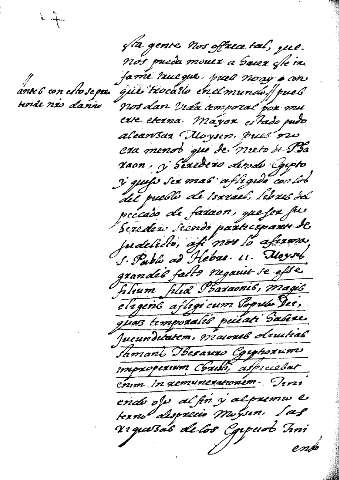 esta gente nos offrezca tal, que
nos pueda mover a hacer este in
fame trueque. pues no ay con
que trocarlo en el mundo // pues
nos dan vida temporal por mu
erte eterna. Mayor estado pudo
alcançar Moysen, pues no
era menos que de nieto de Pha
raon, y heredero de todo Egypto
y quiso ser mas afligido con los
del pueblo de Israel, libres del
peccado de faraon, que ser su
heredero siendo participante de
su delicto, assi nos lo afirma
S. Pablo ad Hebre. 11. Moyses
grandis factus negavit se esse
filium filiæ Pharaonis, magis
eligens affligi cum Populo Dei,
quam temporalis peccati habere
Jucunditatem, maiores divitias
æstimans Thesauro Egyptiorum
improperium Christi, aspiciebat
enim in remunerationem. Tini
endo ojo al fin y al premio e
terno despreció Moysen las
riquezas de los Egipcios Tini
endo
//
antes con esto se pre
tende nro daño